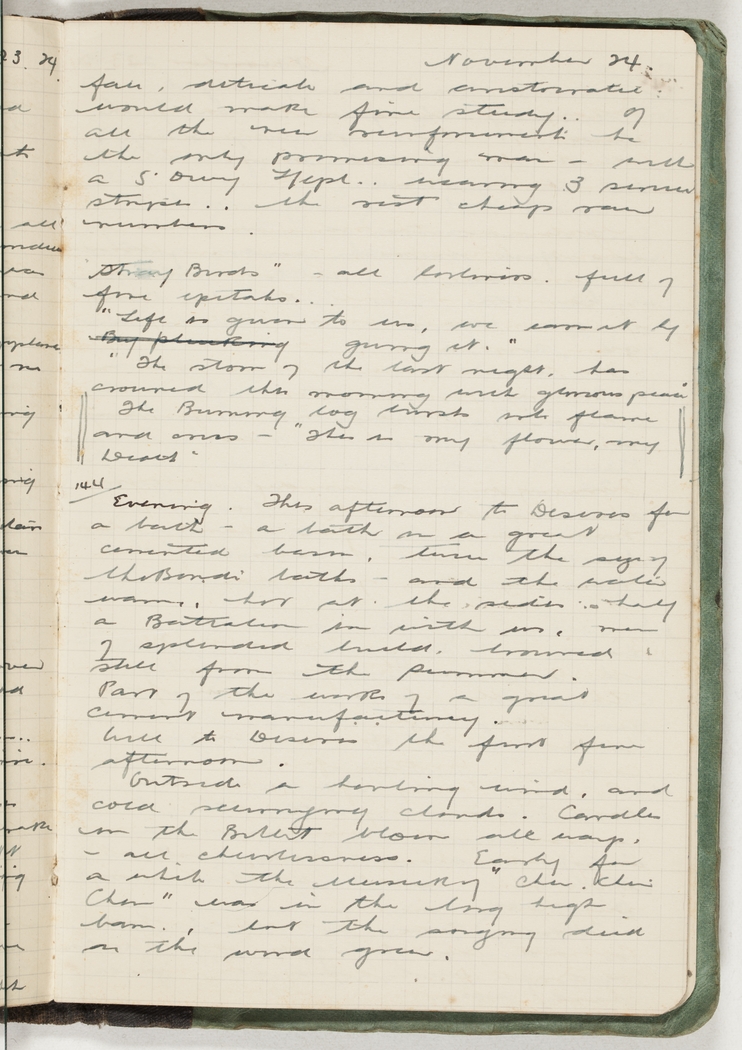 November 24.
fair, delicate and aristocratic.
would make fine study.. Of
all the new reinforcement he
the only promising man – with
a S. Driv Hept.. wearing 3 service
stripes.. the rest cheap raw
numbers.
Stray Birds" – all loveliness. full of
fine epitahs...
"Life is given to us, we earn it by
By plucking giving it."
"The storm of the last night, has
crowned this morning with glorious peace"
The Burning log bursts into flame
and cries – "This is my flower, my
Death"
144
Evening. This afternoon to Desvres for
a bath – a bath in a great
cemented basin, twice the size of
the Bondi baths – and the water
warm, hot at the sides: half
a Battalion in with us, men
of splendid build, browned
still from the summer.
Part of the works of a great
cement manufacturery.
to Desvres the first fine
afternoon.
Outside a howling wind, and
cold scurrying clouds. Candles
in the Billet blown all ways,
– all cheerlessness. Early for
a while the music of "Chu. Chin
Chow" was in the long high
barn., but the singing died
as the wind grew.